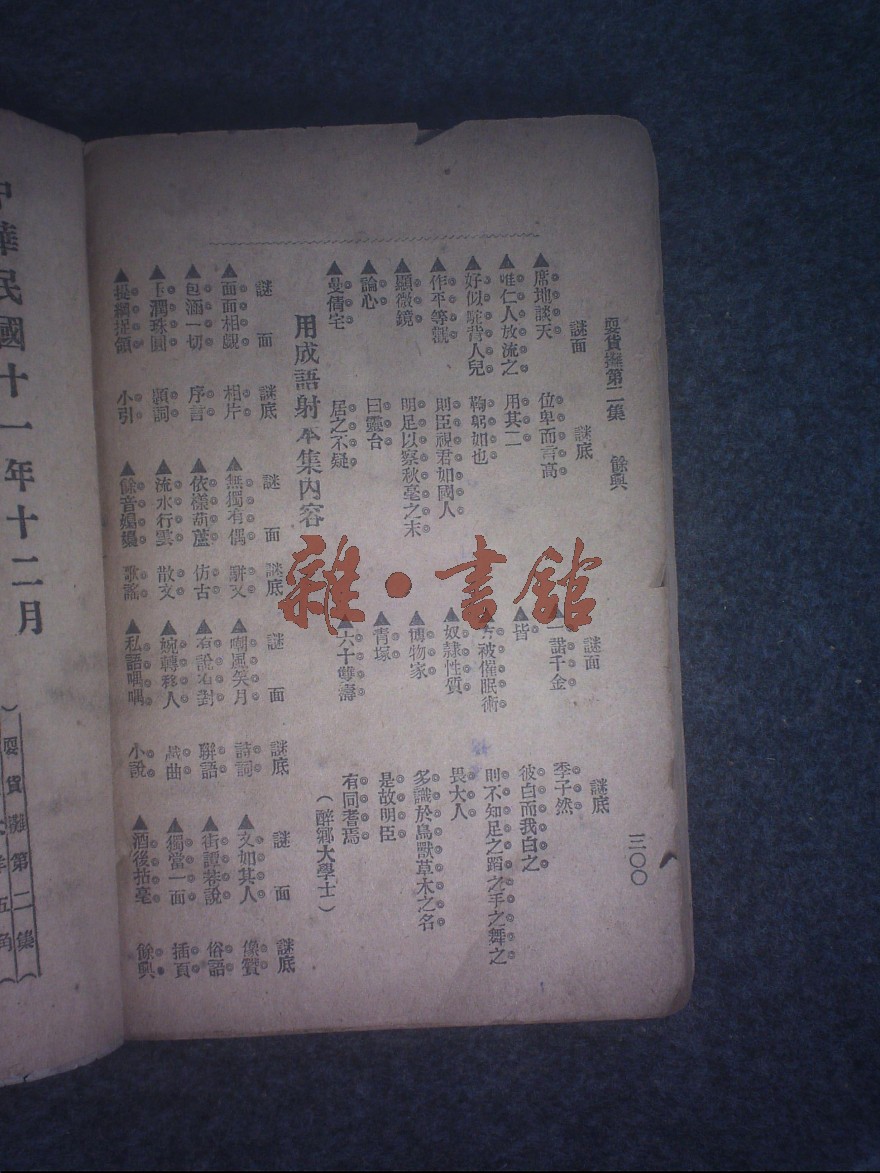 耍貨攤第二集　餘興
三〇〇
謎面　謎底
▲席地談天　位卑而言高
▲唯仁人放流之　用其二
▲好似駝背人兒　鞠躬如也
▲作平等觀　則臣視君如國人
▲顯微鏡　明足以察秋毫之末
▲論心　曰靈台
▲曼倩宅　居之不疑
謎面　謎底
一諾千金　季子然
▲皆　彼白而我白之
被催眠術　則不知足之蹈之手之舞之
▲奴隸性質　畏大人
▲博物家　多識於鳥獸草木之名
▲青塚　是故明臣
▲六十雙壽　有同耆焉
（醉鄉大學士）
用成語射本集內容
謎面　謎底
▲面面相覷　相片
▲包涵一切　序言
▲玉潤珠圓　題詞
▲提綱挈領　小引
謎面　謎底
▲無獨有偶　駢文
▲依樣葫蘆　仿古
▲流水行雲　散文
▲餘音嫋嫋　歌謠
謎面　謎底
▲嘲風笑月　詩詞
▲有說有對　聯語
▲婉轉移人　戲曲
▲私語喁喁　小說
謎面　謎底
▲文如其人　像贊
▲街譚巷說　俗語
▲獨當一面　插頁
▲酒後拈毫　餘興
中華民國十一年十二月
耍貨攤第二集
五角
雜·書館